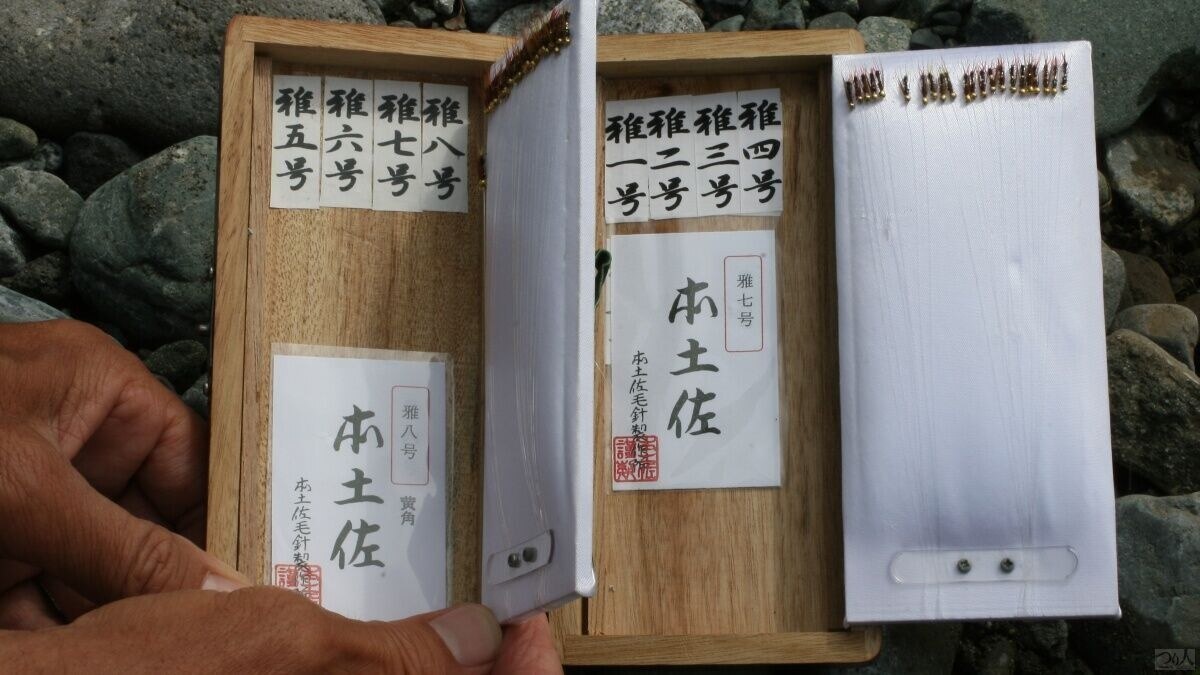 雅五号
雅六号
雅七号
雅八号
雅一号
雅二号
雅三号
雅四号
雅七号
本土佐
本土佐毛針製
雅八号
黄角
本土佐
本土佐毛針製
つり人